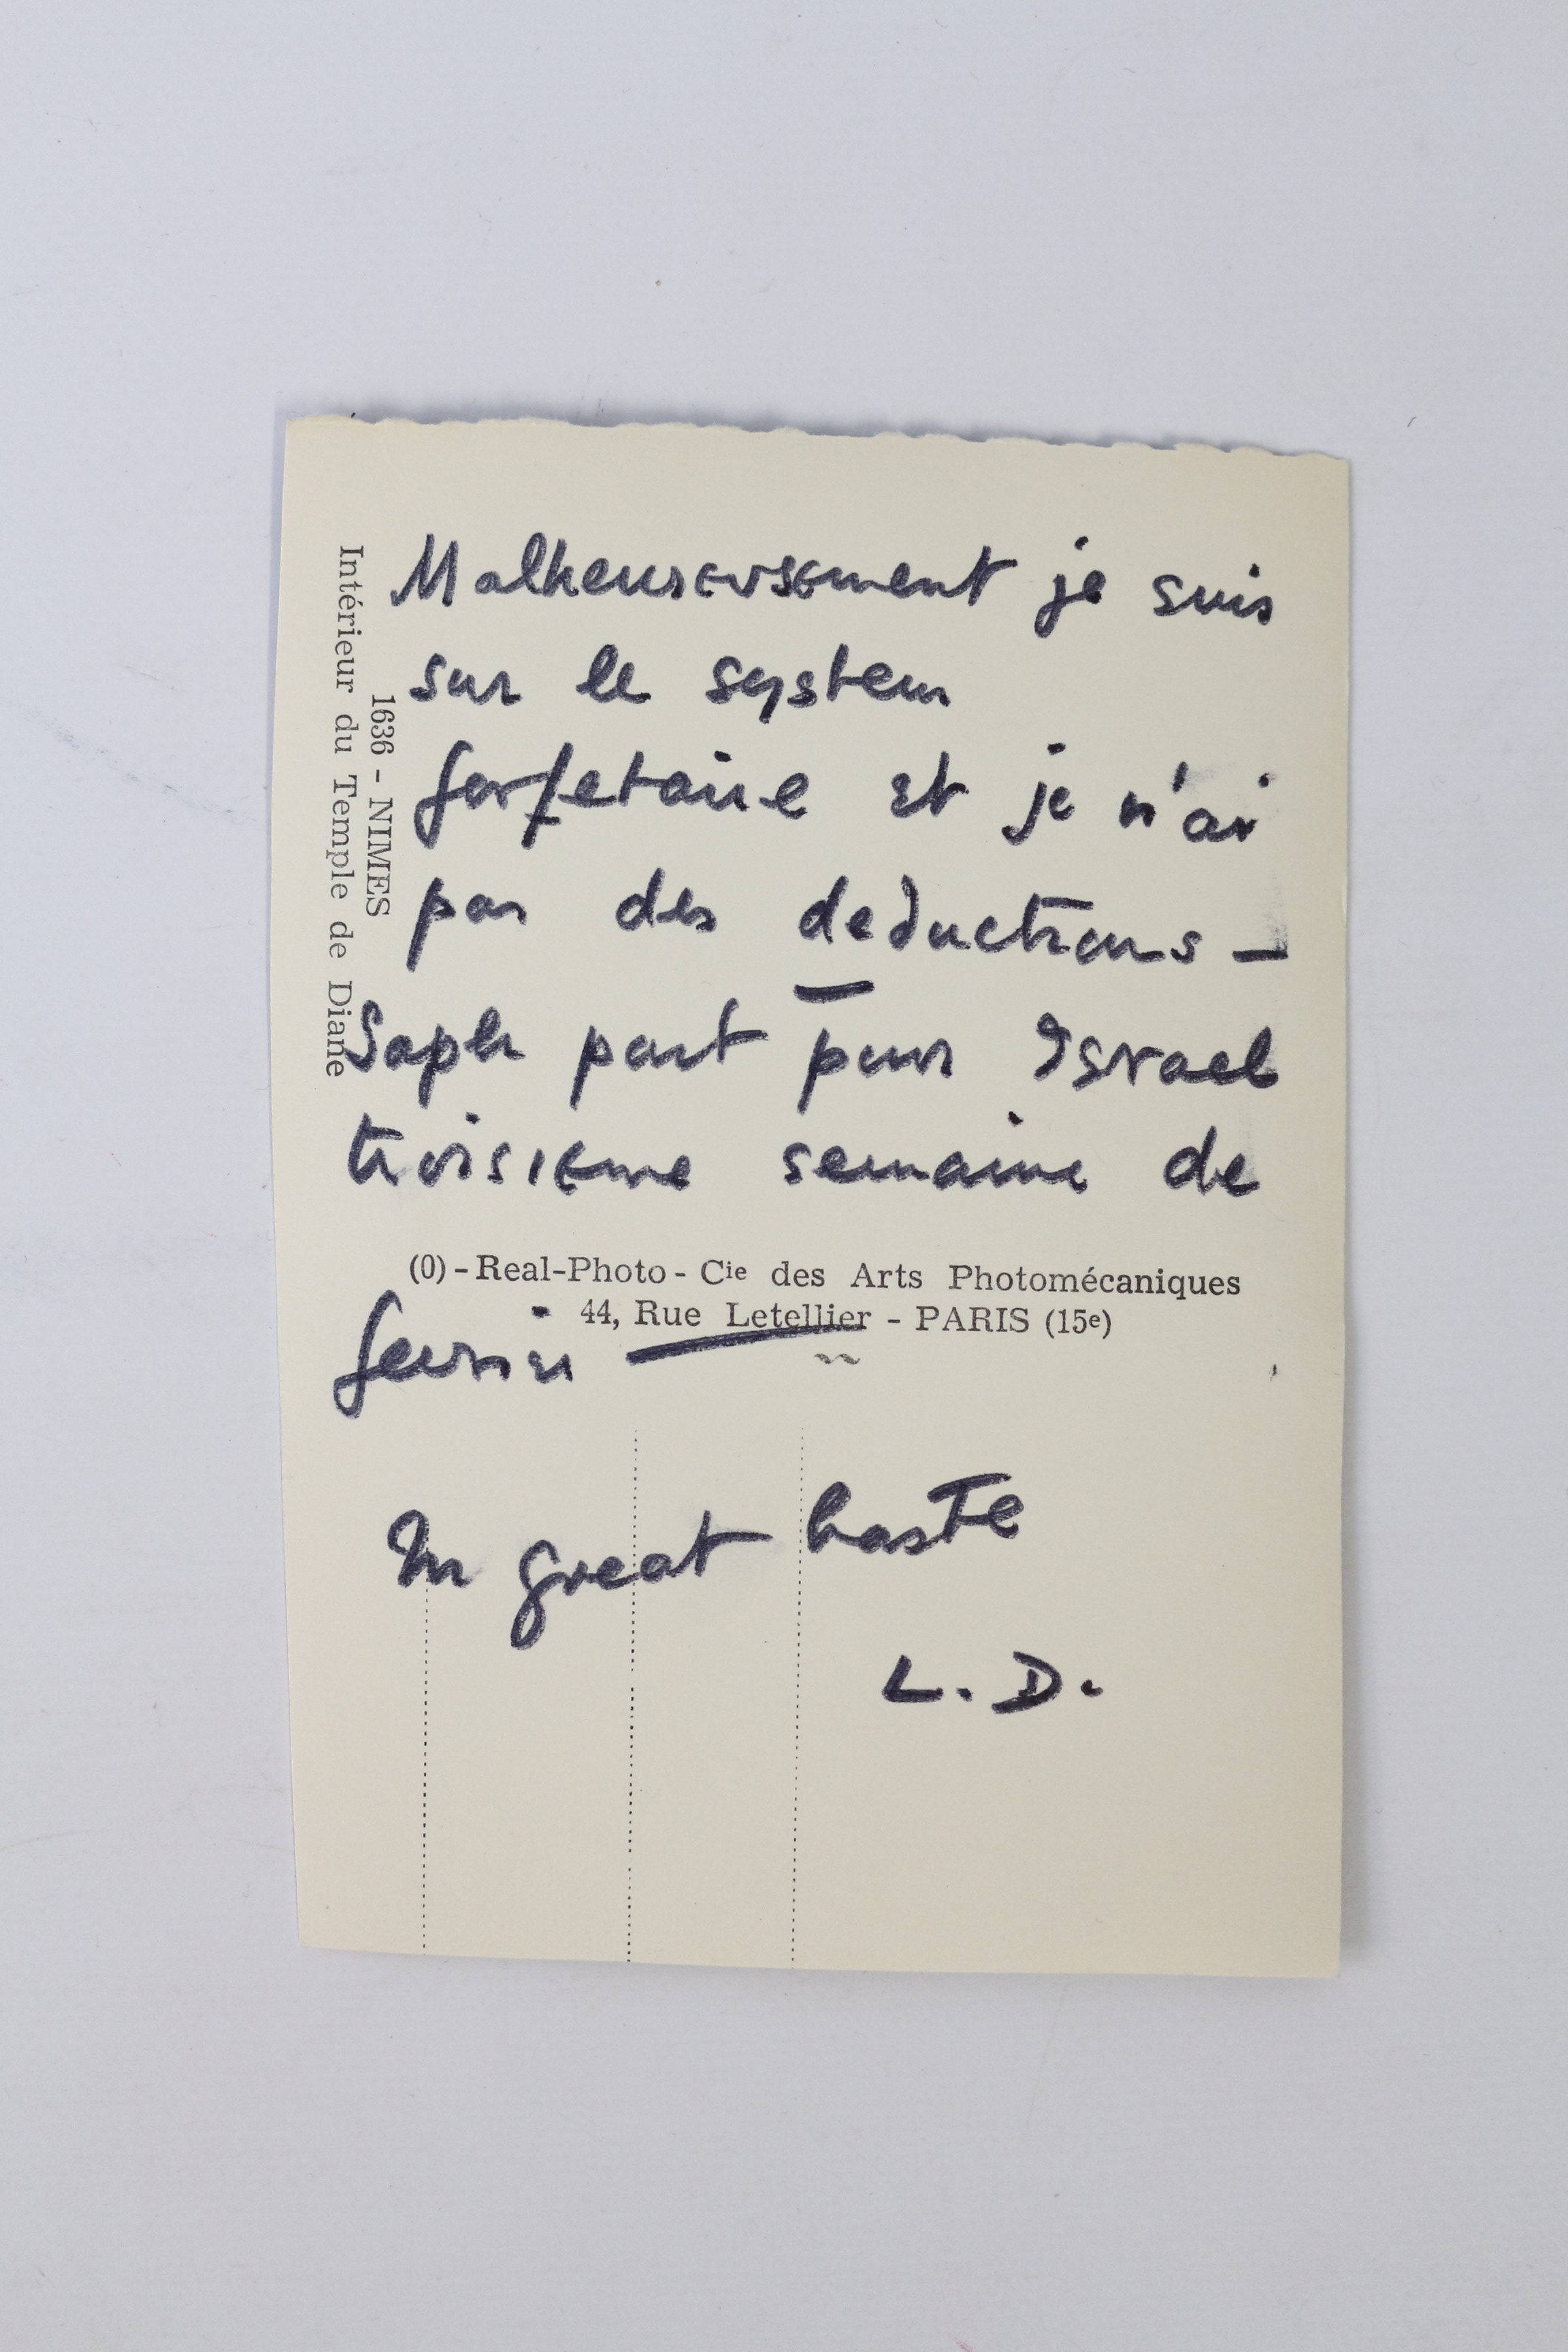 Malheureusement je suis
sur le system
forfetaire et je n'ai
pas des deductions —
Saph part pour Israel
troisieme semaine de
fevrier —
In great haste
L. D.
1636 - NIMES
Intérieur du Temple de Diane
(0) - Real-Photo - Cie des Arts Photomécaniques
44, Rue Letellier - PARIS (15e)